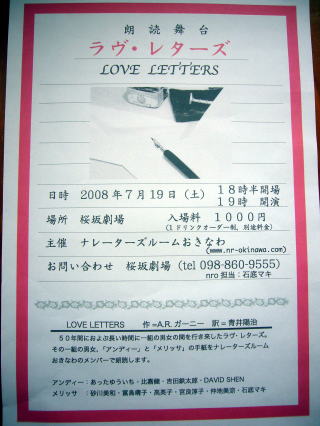 朗読舞台
ラヴ・レターズ
LOVE LETTERS
日時 2008年7月19日（土） 18時半開場
19時 開演
場所 桜坂劇場 入場料 1000円
(1ドリンクオーダー制、別途料金)
主催 ナレーターズルームおきなわ
(www.nr-okinawa.com)
お問い合わせ 桜坂劇場 (tel 098-860-9555)
nro担当：石底マキ
LOVE LETTERS 作＝A.R.ガーニー 訳＝青井陽治
５０年間におよぶ長い時間に一組の男女の間を行き来したラヴ・レターズ。
その一組の男女、「アンディー」と「メリッサ」の手紙をナレーターズルーム
おきなわのメンバーで朗読します。
アンディー：あったゆういち・比嘉健・吉田鉄太郎・DAVID SHEN
メリッサ ：砂川美和・冨眞晴子・高英子・宮良淳子・仲地美奈・石底マキ